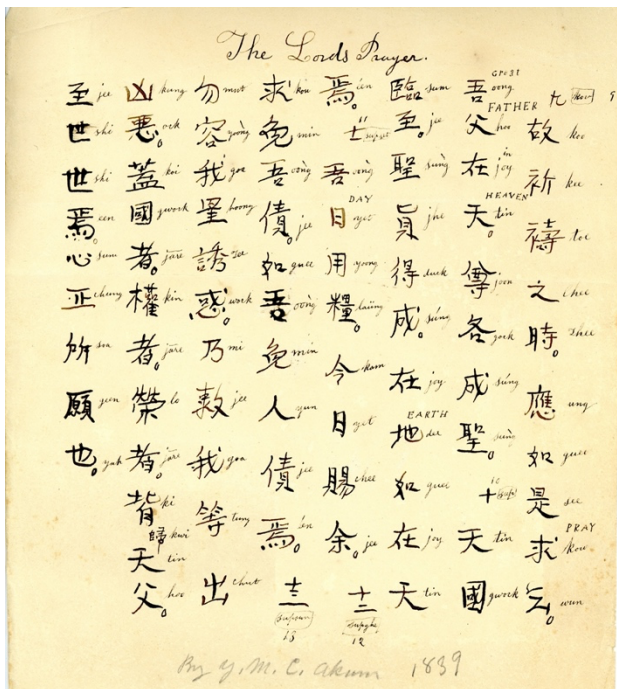 The Lords Prayer.
九 9
故 koo 祈 kee 禱 toe 之 chee 時。 shee 應 ung 如 yuee 是 see 求 PRAY kou 云。 wun
吾 oong 父 FATHER hoo 在 in joy 天。 HEAVEN tin 尊 joon 各 gock 成 súng 聖。 sùng 十 10 天 tin 國 gwock
臨 lum 至。 jee 聖 sùng 眞 jhe 得 duck 成。 súng 在 joy 地 EARTH dee 如 yuee 在 joy 天 tin
焉。 een 十一 11 吾 oong 日 DAY yet 用 yoong 糧。 laüng 今 kam 日 yet 賜 chee 余。 jee 十二 12
求 kou 免 min 吾 oong 債。 jee 如 yuee 吾 oong 免 min 人 yun 債 jee 焉。 én 十三 13
勿 mut 容 yoong 我 goa hoong 誘 惑。 work 乃 mi 救 jee 我 goa 等 tung 出 chut
凶 kung 惡。 ock 蓋 koi 國 gwock 者。 jare 權 kin 者。 jare 榮 lo 者。 jare 皆 ki 歸 kwi 天 tin 父。 hoo
至 jee 世 shi 世 shi 焉。 een 心 sum 正 chung 所 soa 願 yuen 也。 yah
By Y. M. C. Akum 1839